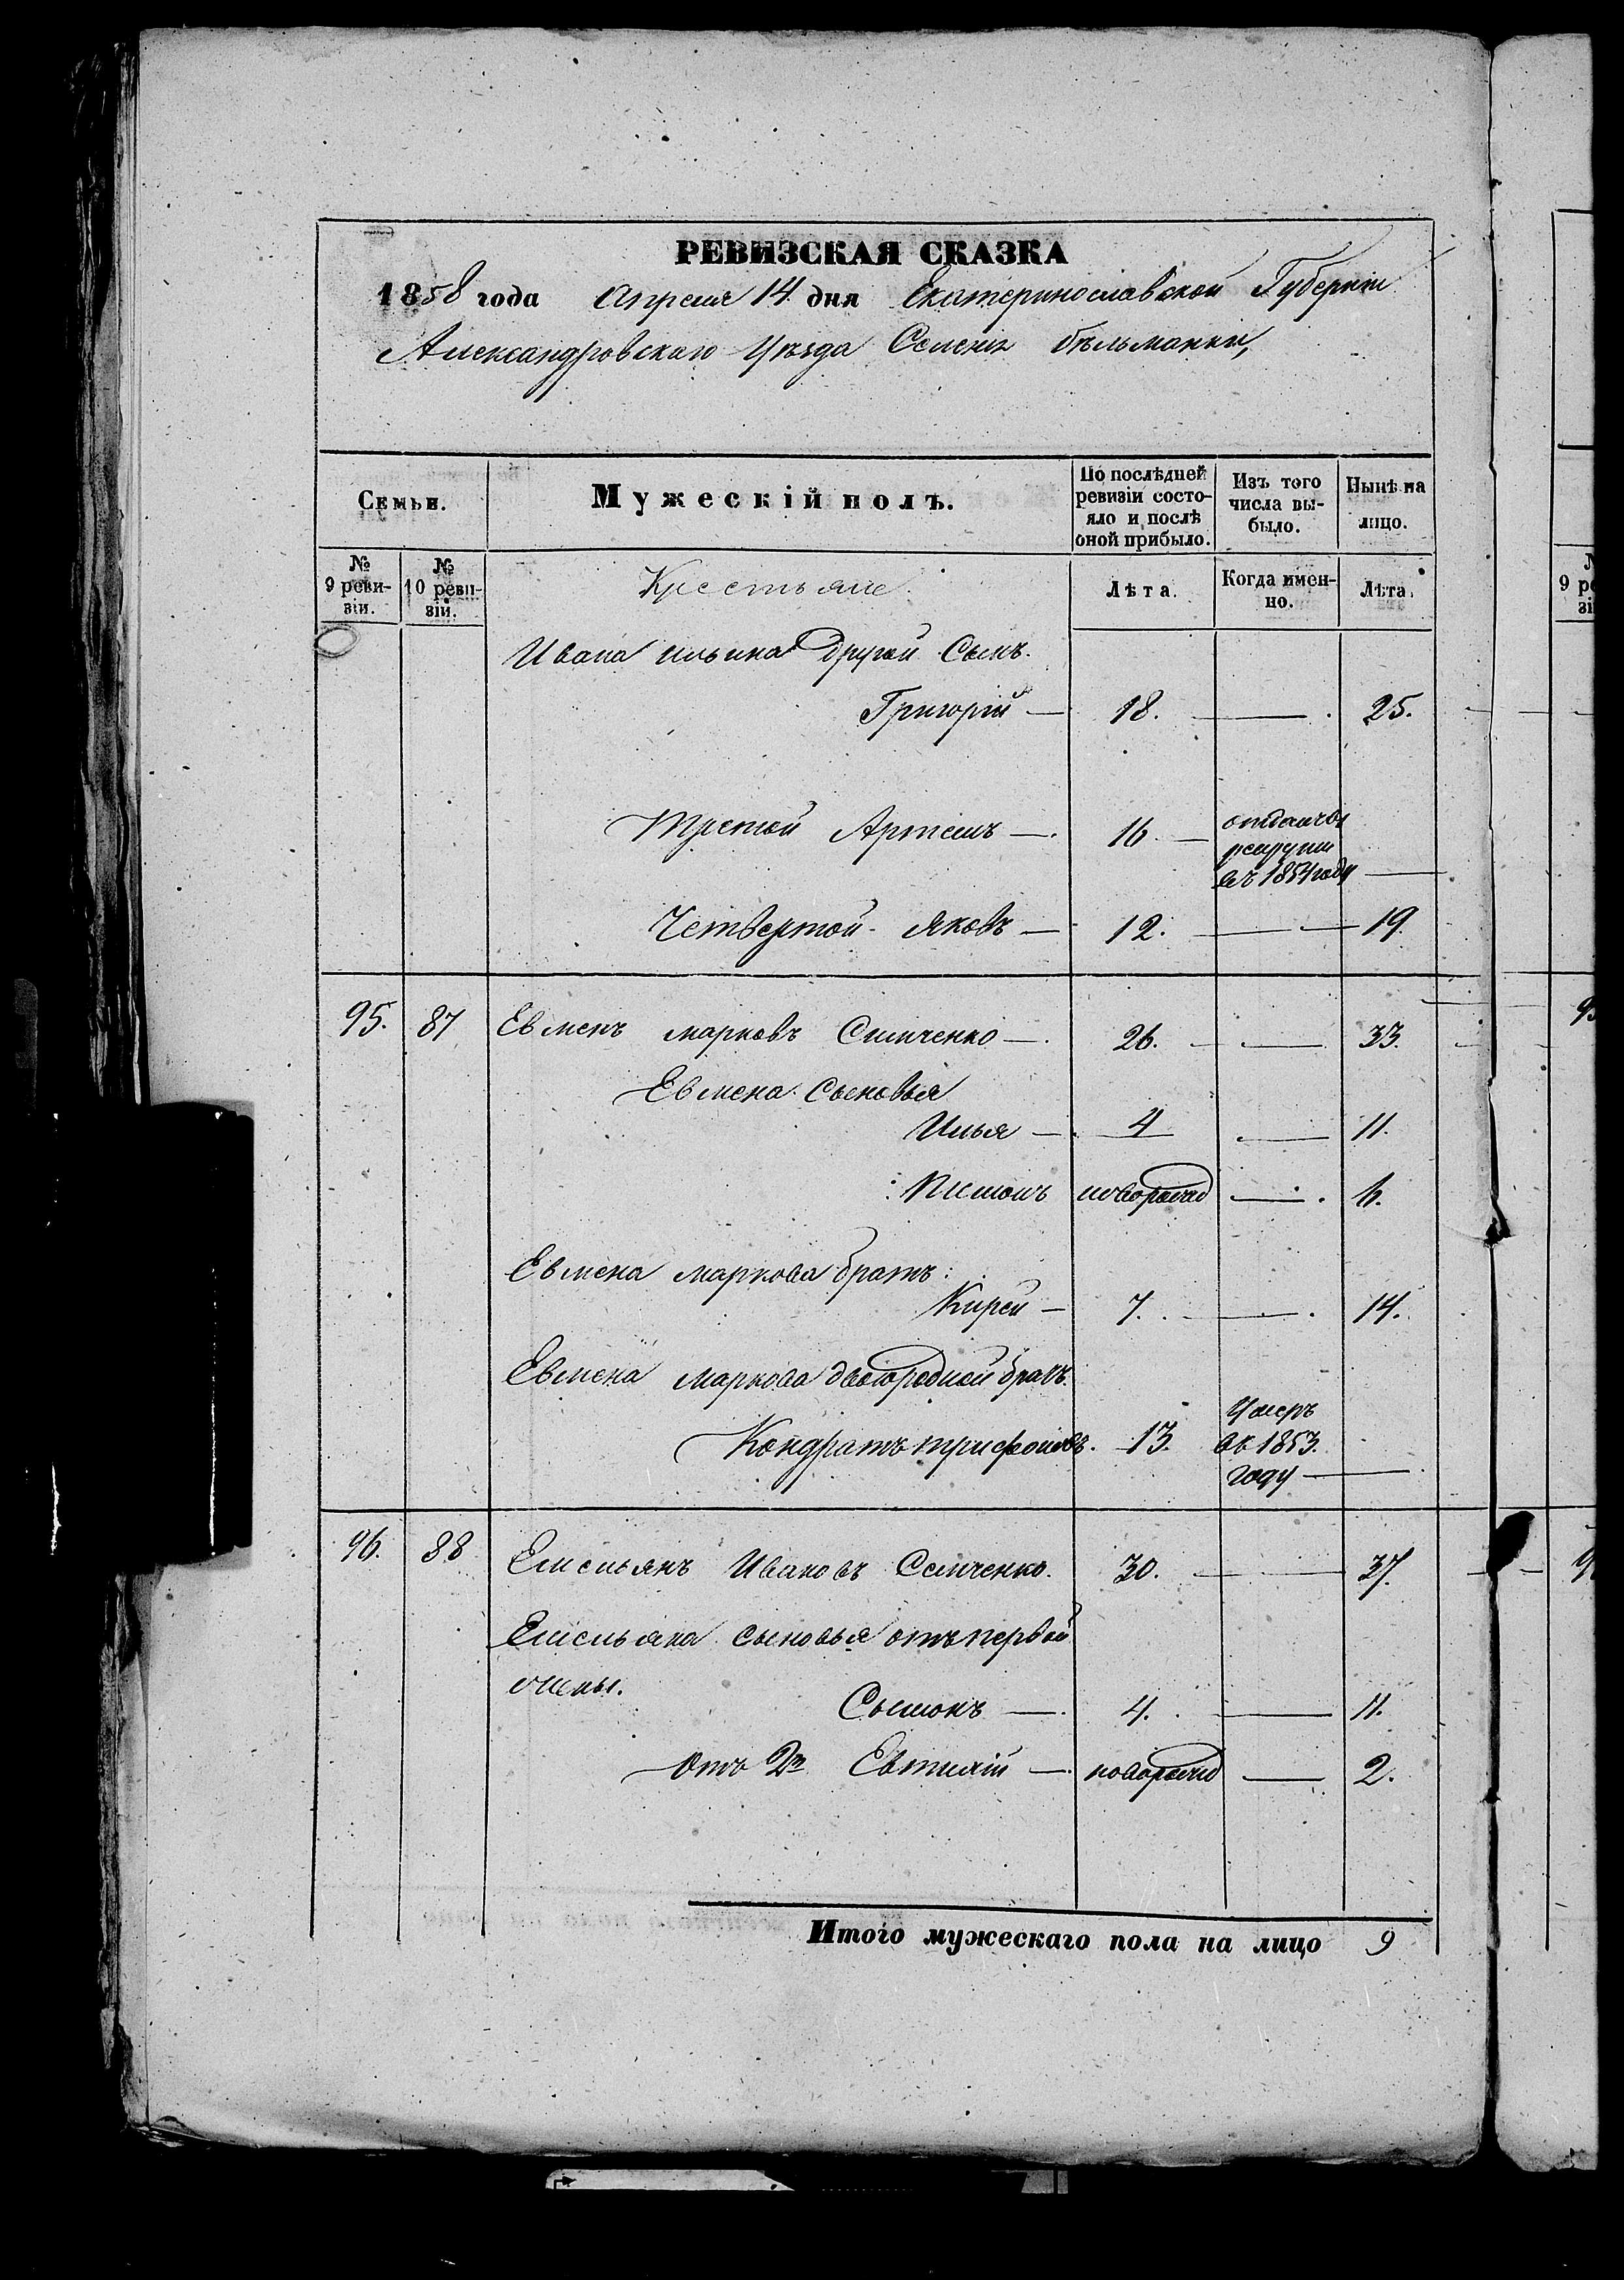 РЕВИЗСКАЯ СКАЗКА
1858 года Апреля 14 дня Екатеринославской Губернiи
Александровскаго Уѣзда Селенiя бѣльманки,
Семьи.
Мужескiй полъ.
По послѣдней ревизiи состо-
яло и послѣ
оной прибыло.
Изъ того
числа вы-
было.
Нынѣ на
лицо.
№
9 реви-
зiи.
№
10 реви-
зiи.
Крестьяне
Лѣта.
Когда имен-
но.
Лѣта.
Ивана ильина другой Сынъ.
Григорiй — 18. — 25.
Третой Артемъ — 16 — отданъ въ
рекруты
въ 1854 году —
Четвертой Яковъ — 12. — 19.
95. 87 Евменъ марковъ Симченко — 26. — 33.
Евмена Сыновья
Илья — 4 — 11.
Пимонъ новорожд — 6.
Евмена маркова братъ:
Кирей — 7. — 14.
Евмена маркова двоюродной братъ.
Кондратъ трифоновъ. 13. Умеръ
въ 1853.
году —
96. 88 Емельянъ Ивановъ Семченко. 30. — 37.
Емельяна сыновья отъ первой
жены.
Сымонъ — 4. — 11.
отъ 2й Евтихiй — новорожд — 2.
Итого мужескаго пола на лицо 9
9 ре
зi